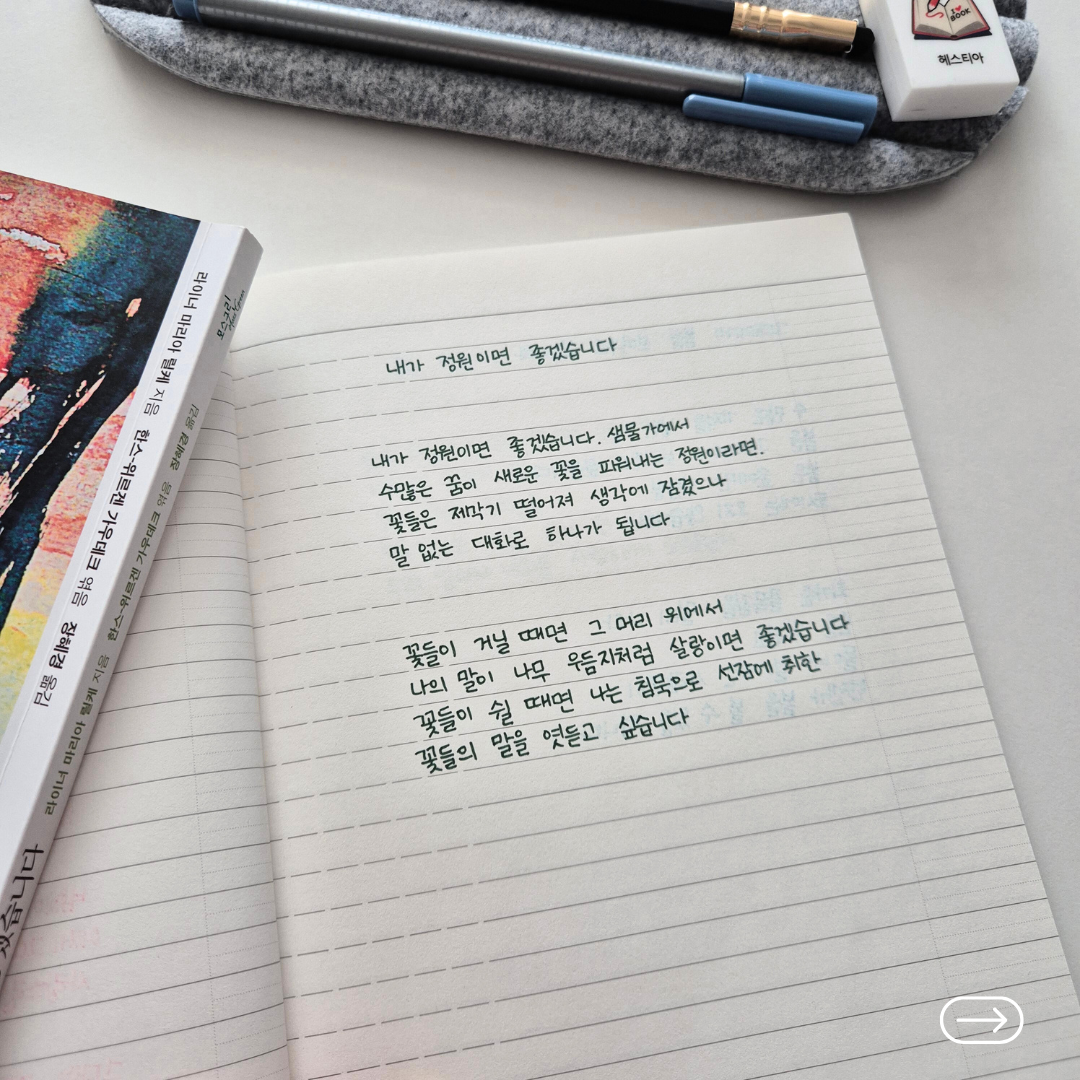 I ♥ BOOK
헤스티아
라이너 마리아 릴케 지음 한스-위르겐 가우데크 엮음 장혜경 옮김
라이너 마리아 릴케 지음 한스-위르겐 가우데크 엮음 장혜경 옮김 모스그린
내가 정원이면 좋겠습니다
내가 정원이면 좋겠습니다. 샘물가에서
수많은 꿈이 새로운 꽃을 피워내는 정원이라면.
꽃들은 제각기 떨어져 생각에 잠겼으나
말 없는 대화로 하나가 됩니다
꽃들이 거닐 때면 그 머리 위에서
나의 말이 나무 우듬지처럼 살랑이면 좋겠습니다
꽃들이 쉴 때면 나는 침묵으로 선잠에 취한
꽃들의 말을 엿듣고 싶습니다